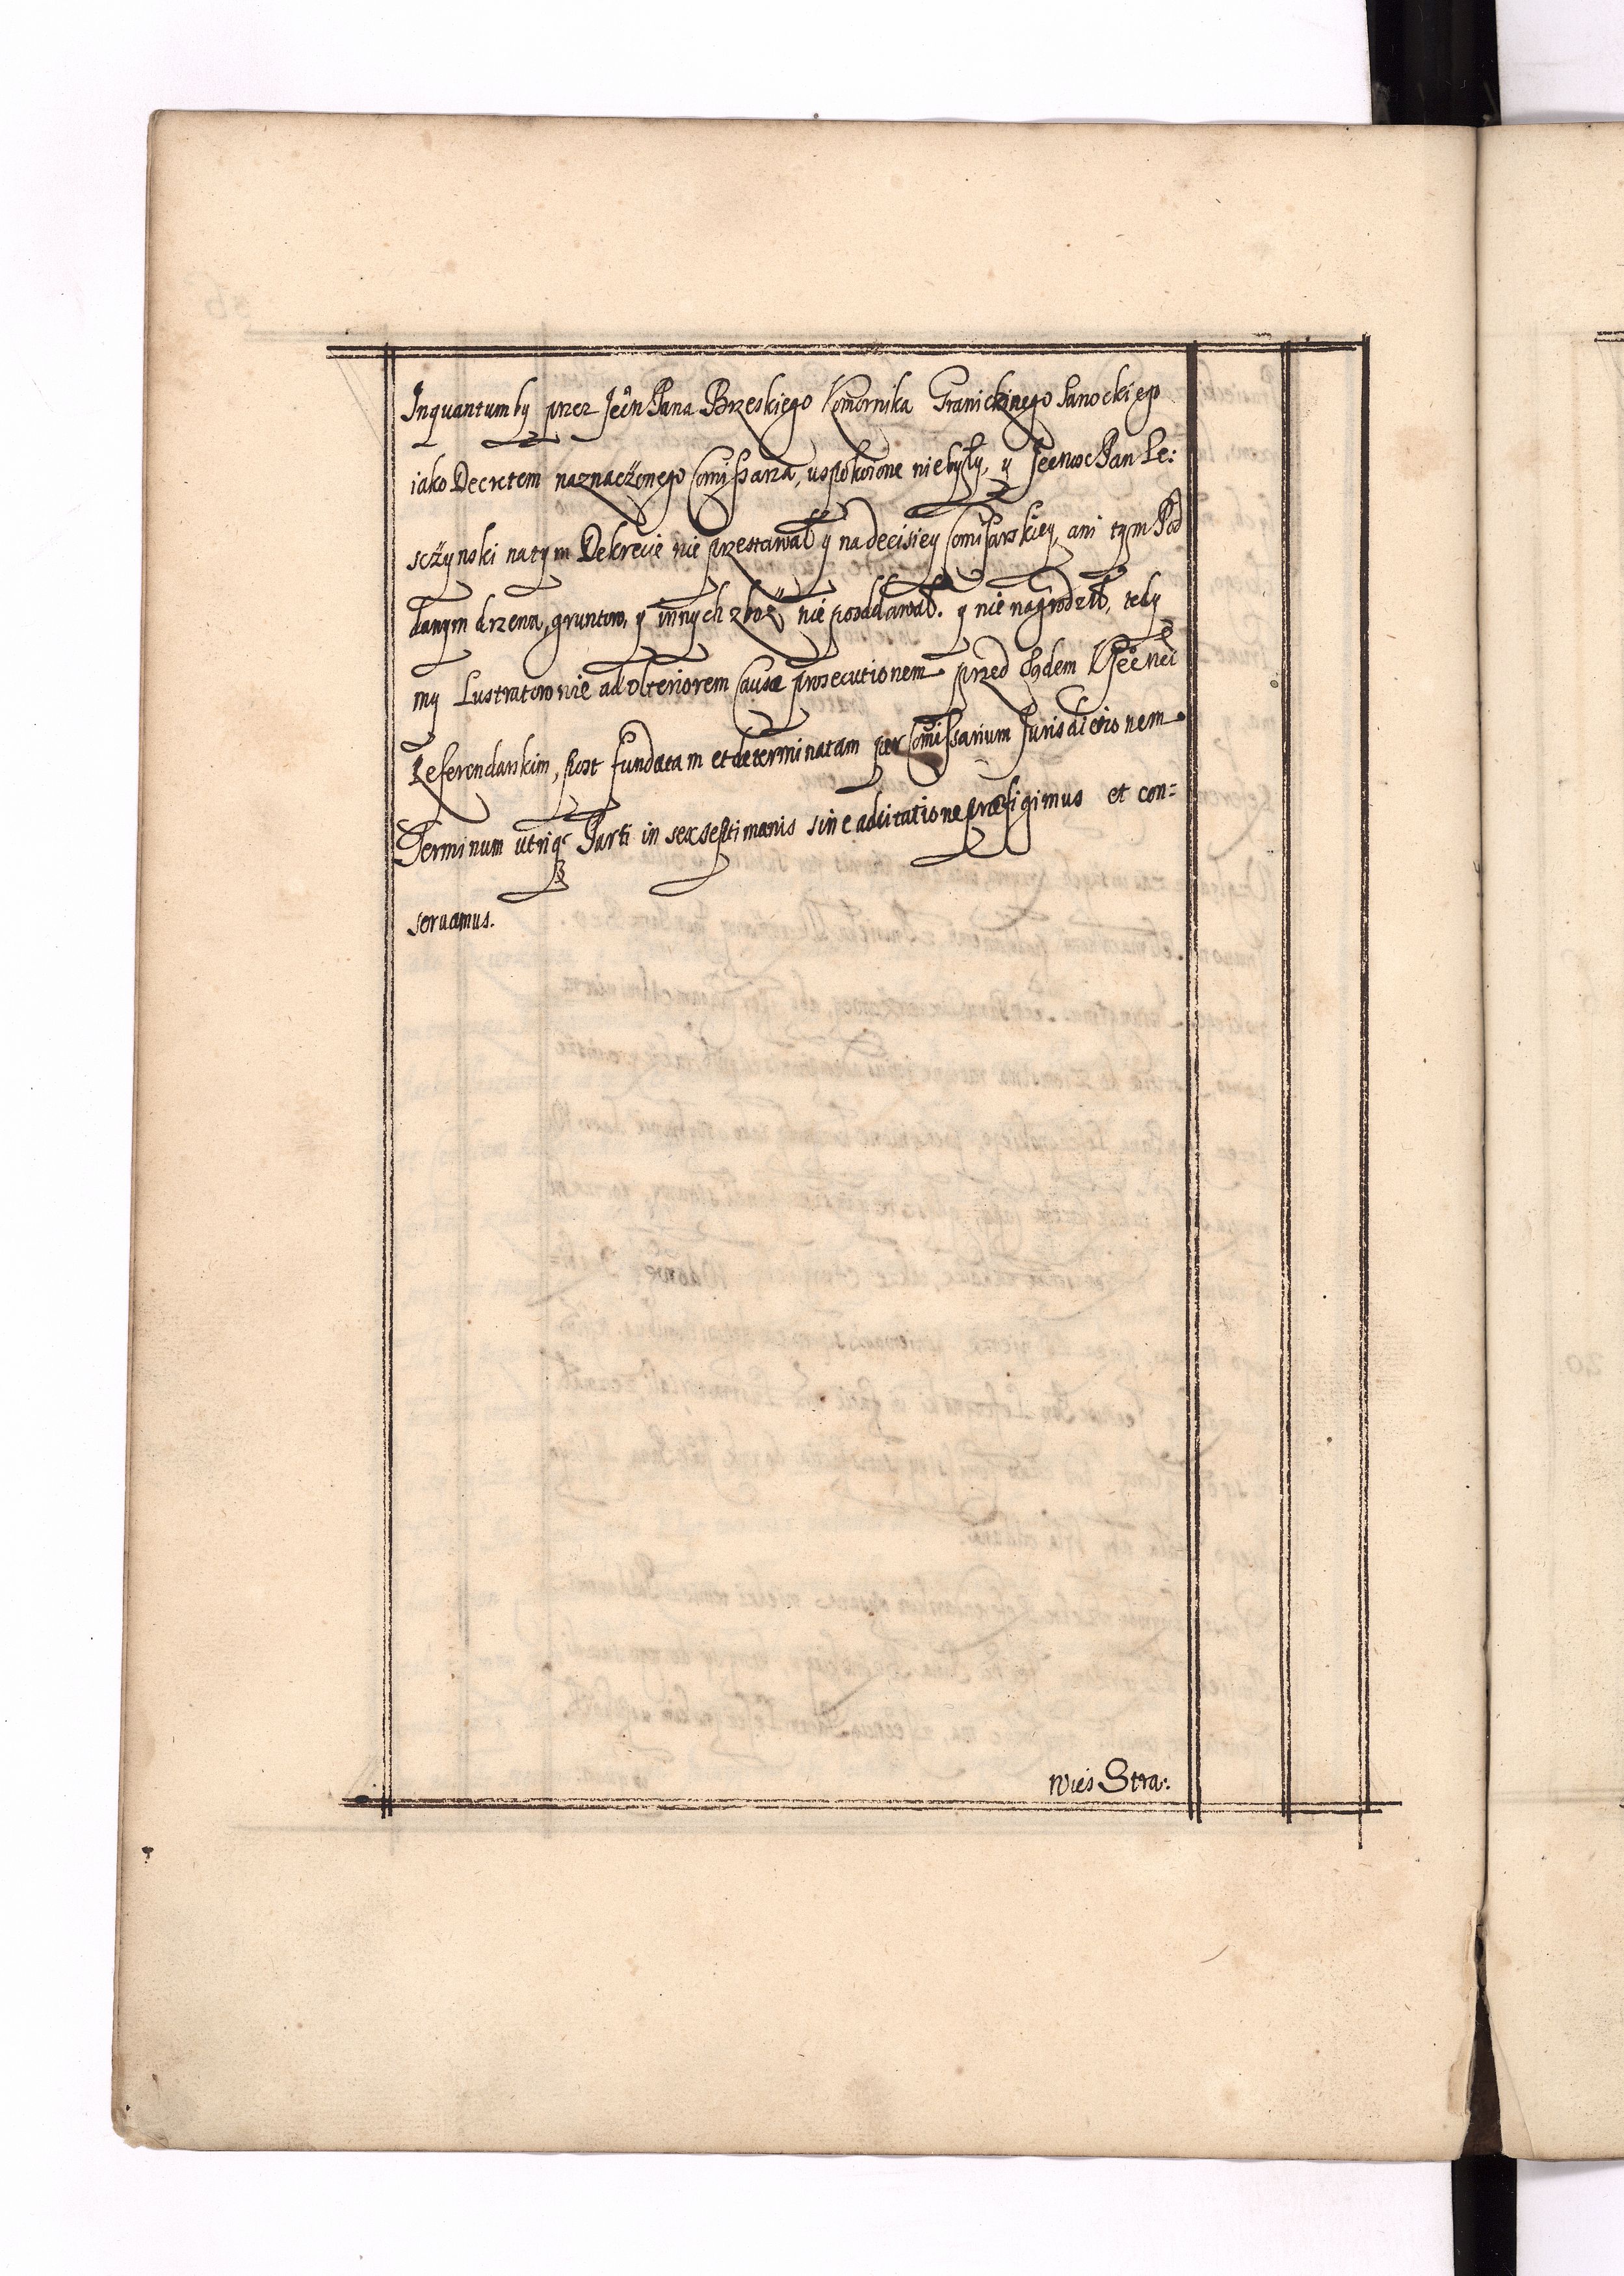 Inquantumby przez Jeön Pana Brzeskiego Komornika Granicznego Sanockiego
iako Decretem naznaczonego Comissarza, uspokoione niebyły, y Jeemoc Pan Le:
sczynski natym Dekrecie nie przestawał y na decisiey Comisarskiey, ani tym Pod
danym drzewa, gruntow, y innych zboż nie pooddawał. y nie nagrodził, tedy
my Lustratorowie ad vlteriorem Causæ prosecutionem przed Sądem
Referendarskim, post fundatam et determinatam per Comissarium Jurisdictionem
Terminum utriq; Parti in sex septimanis sine adcitatione præfigimus et con=
seruamus.
Wies Stra: